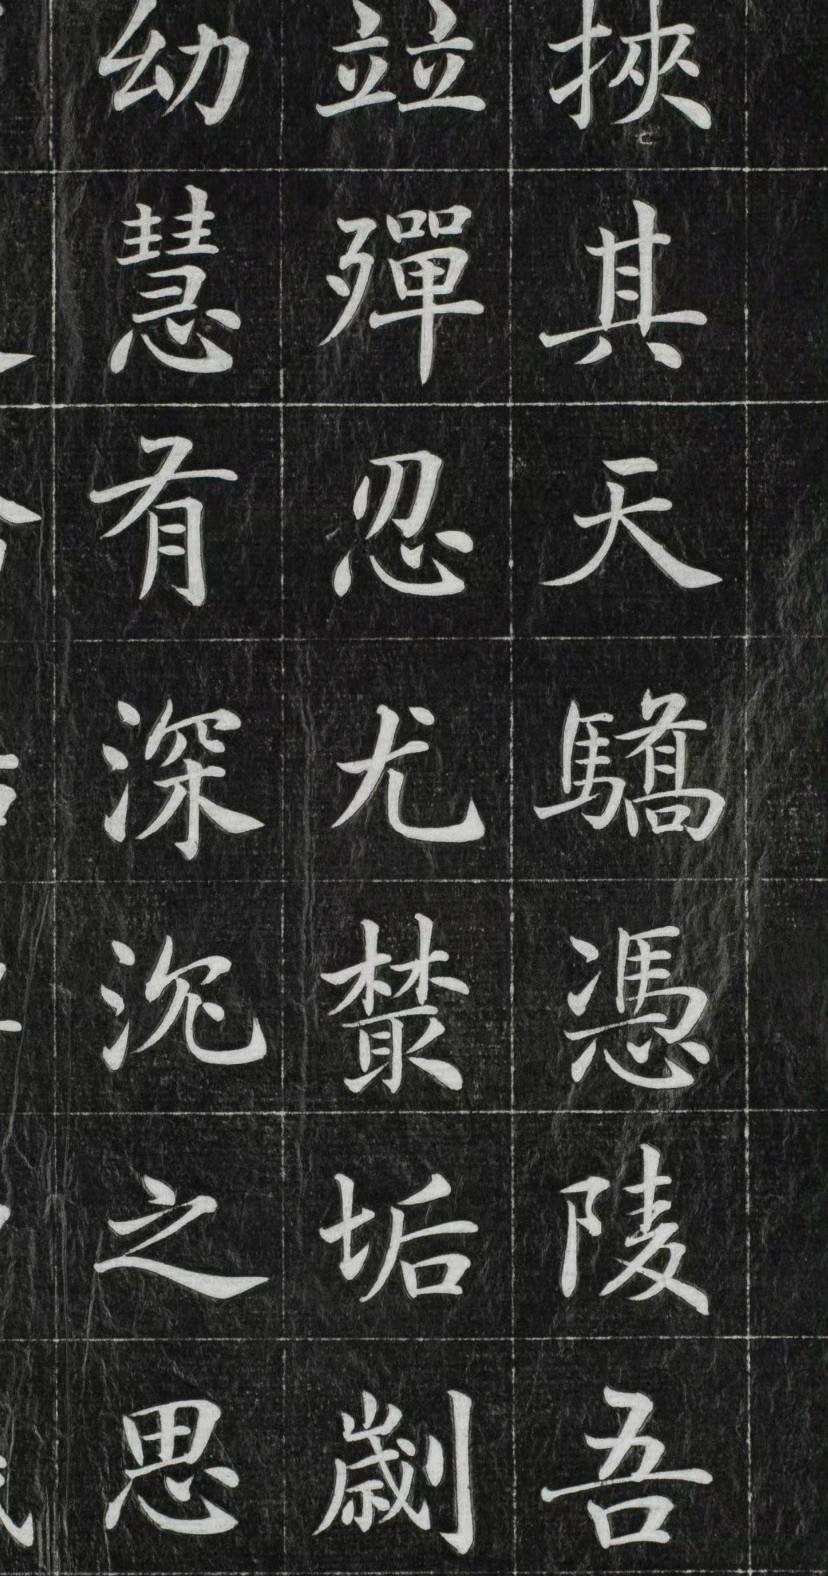 挾其天驕憑陵吾
竝殫忍尤叢垢劌
幼慧有深沉之思